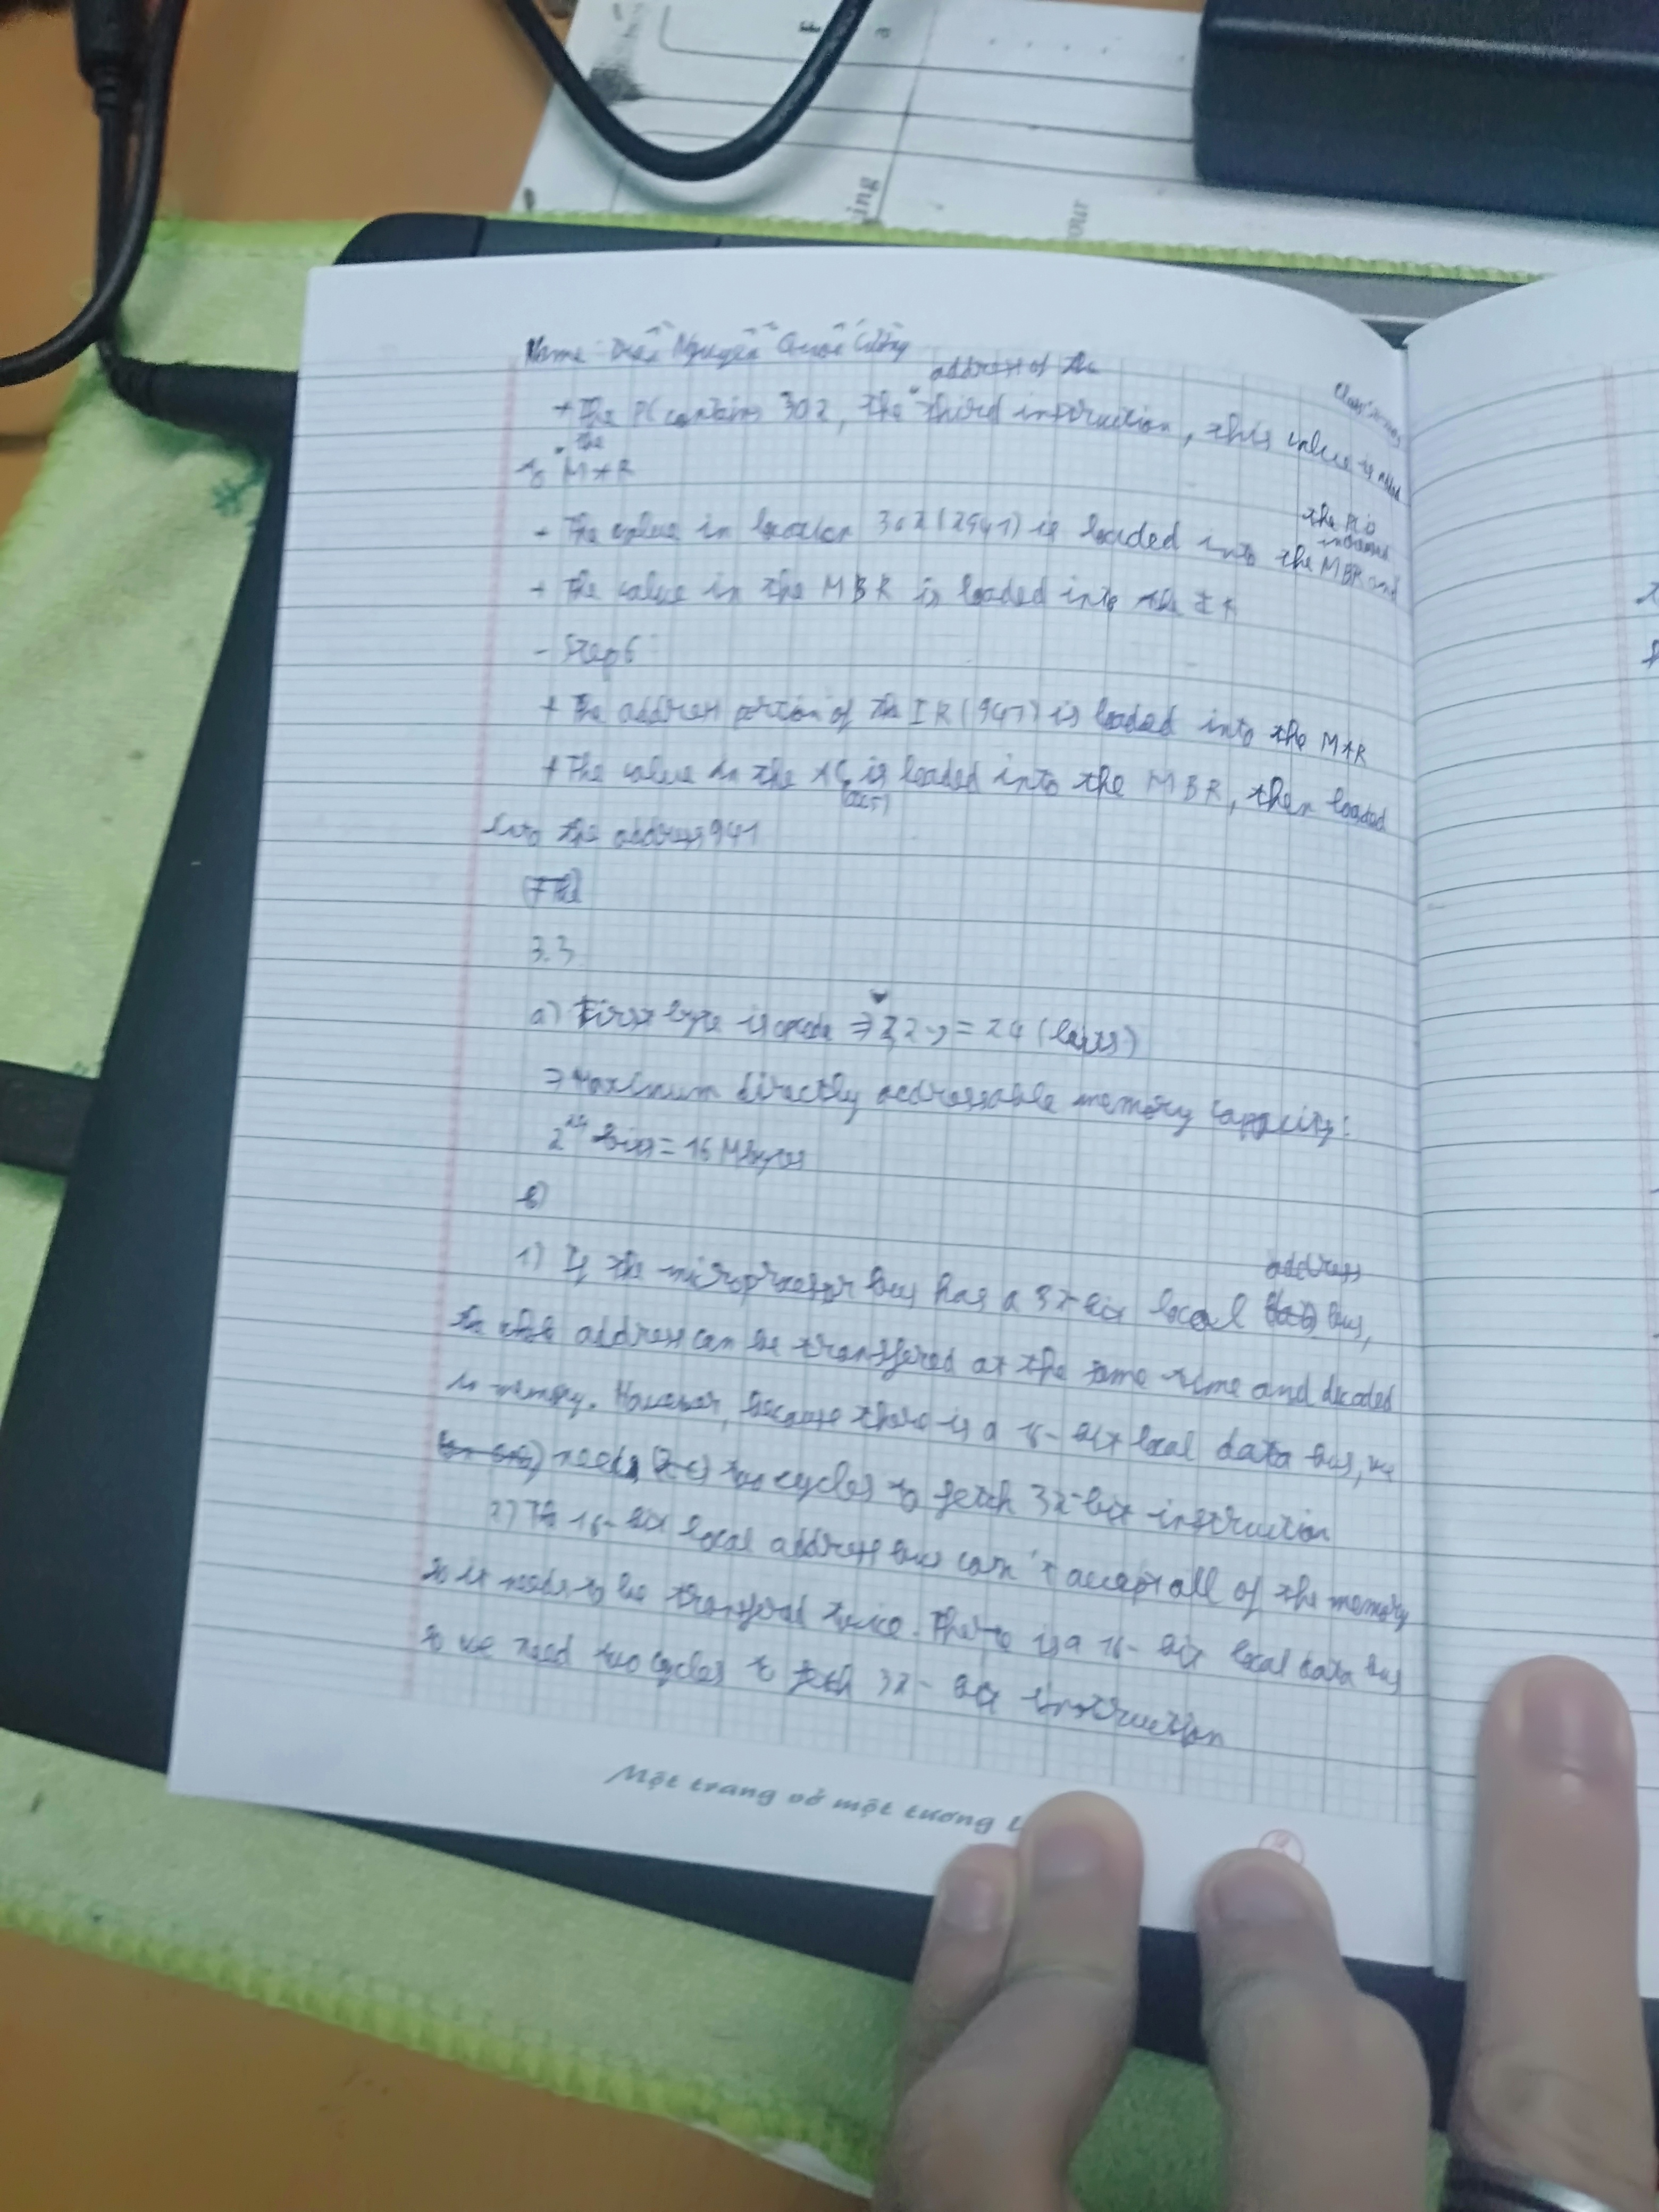 Name: Nguyễn Quốc Cường
address of the
+ The PC contains 302, the third instruction, this value is
the
to MAR
+ The value in location 302 (2941) is loaded into the MBR and
the PC is
+ The value in the MBR is loaded into the IR
- Step 6
+ The address portion of the IR (941) is loaded into the MAR
+ The value in the AC is loaded into the MBR, then loaded
into the address 941
3.3
a) First byte is opcode ⇒ = 24 (bits)
⇒ Maximum directly addressable memory capacity:
2^24 = 16 Mbytes
b)
address
1) If the microprocessor bus has a 32-bit local bus,
the address can be transfered at the same time and decoded
in memory. However, because there is a 16-bit local data bus, we
need two cycles to fetch 32-bit instruction
2) The 16-bit local address bus can't accept all of the memory
so it needs to be transfered twice. There is a 16-bit local data bus
so we need two cycles to fetch 32-bit instruction
Một trang vở một tương
ing
our